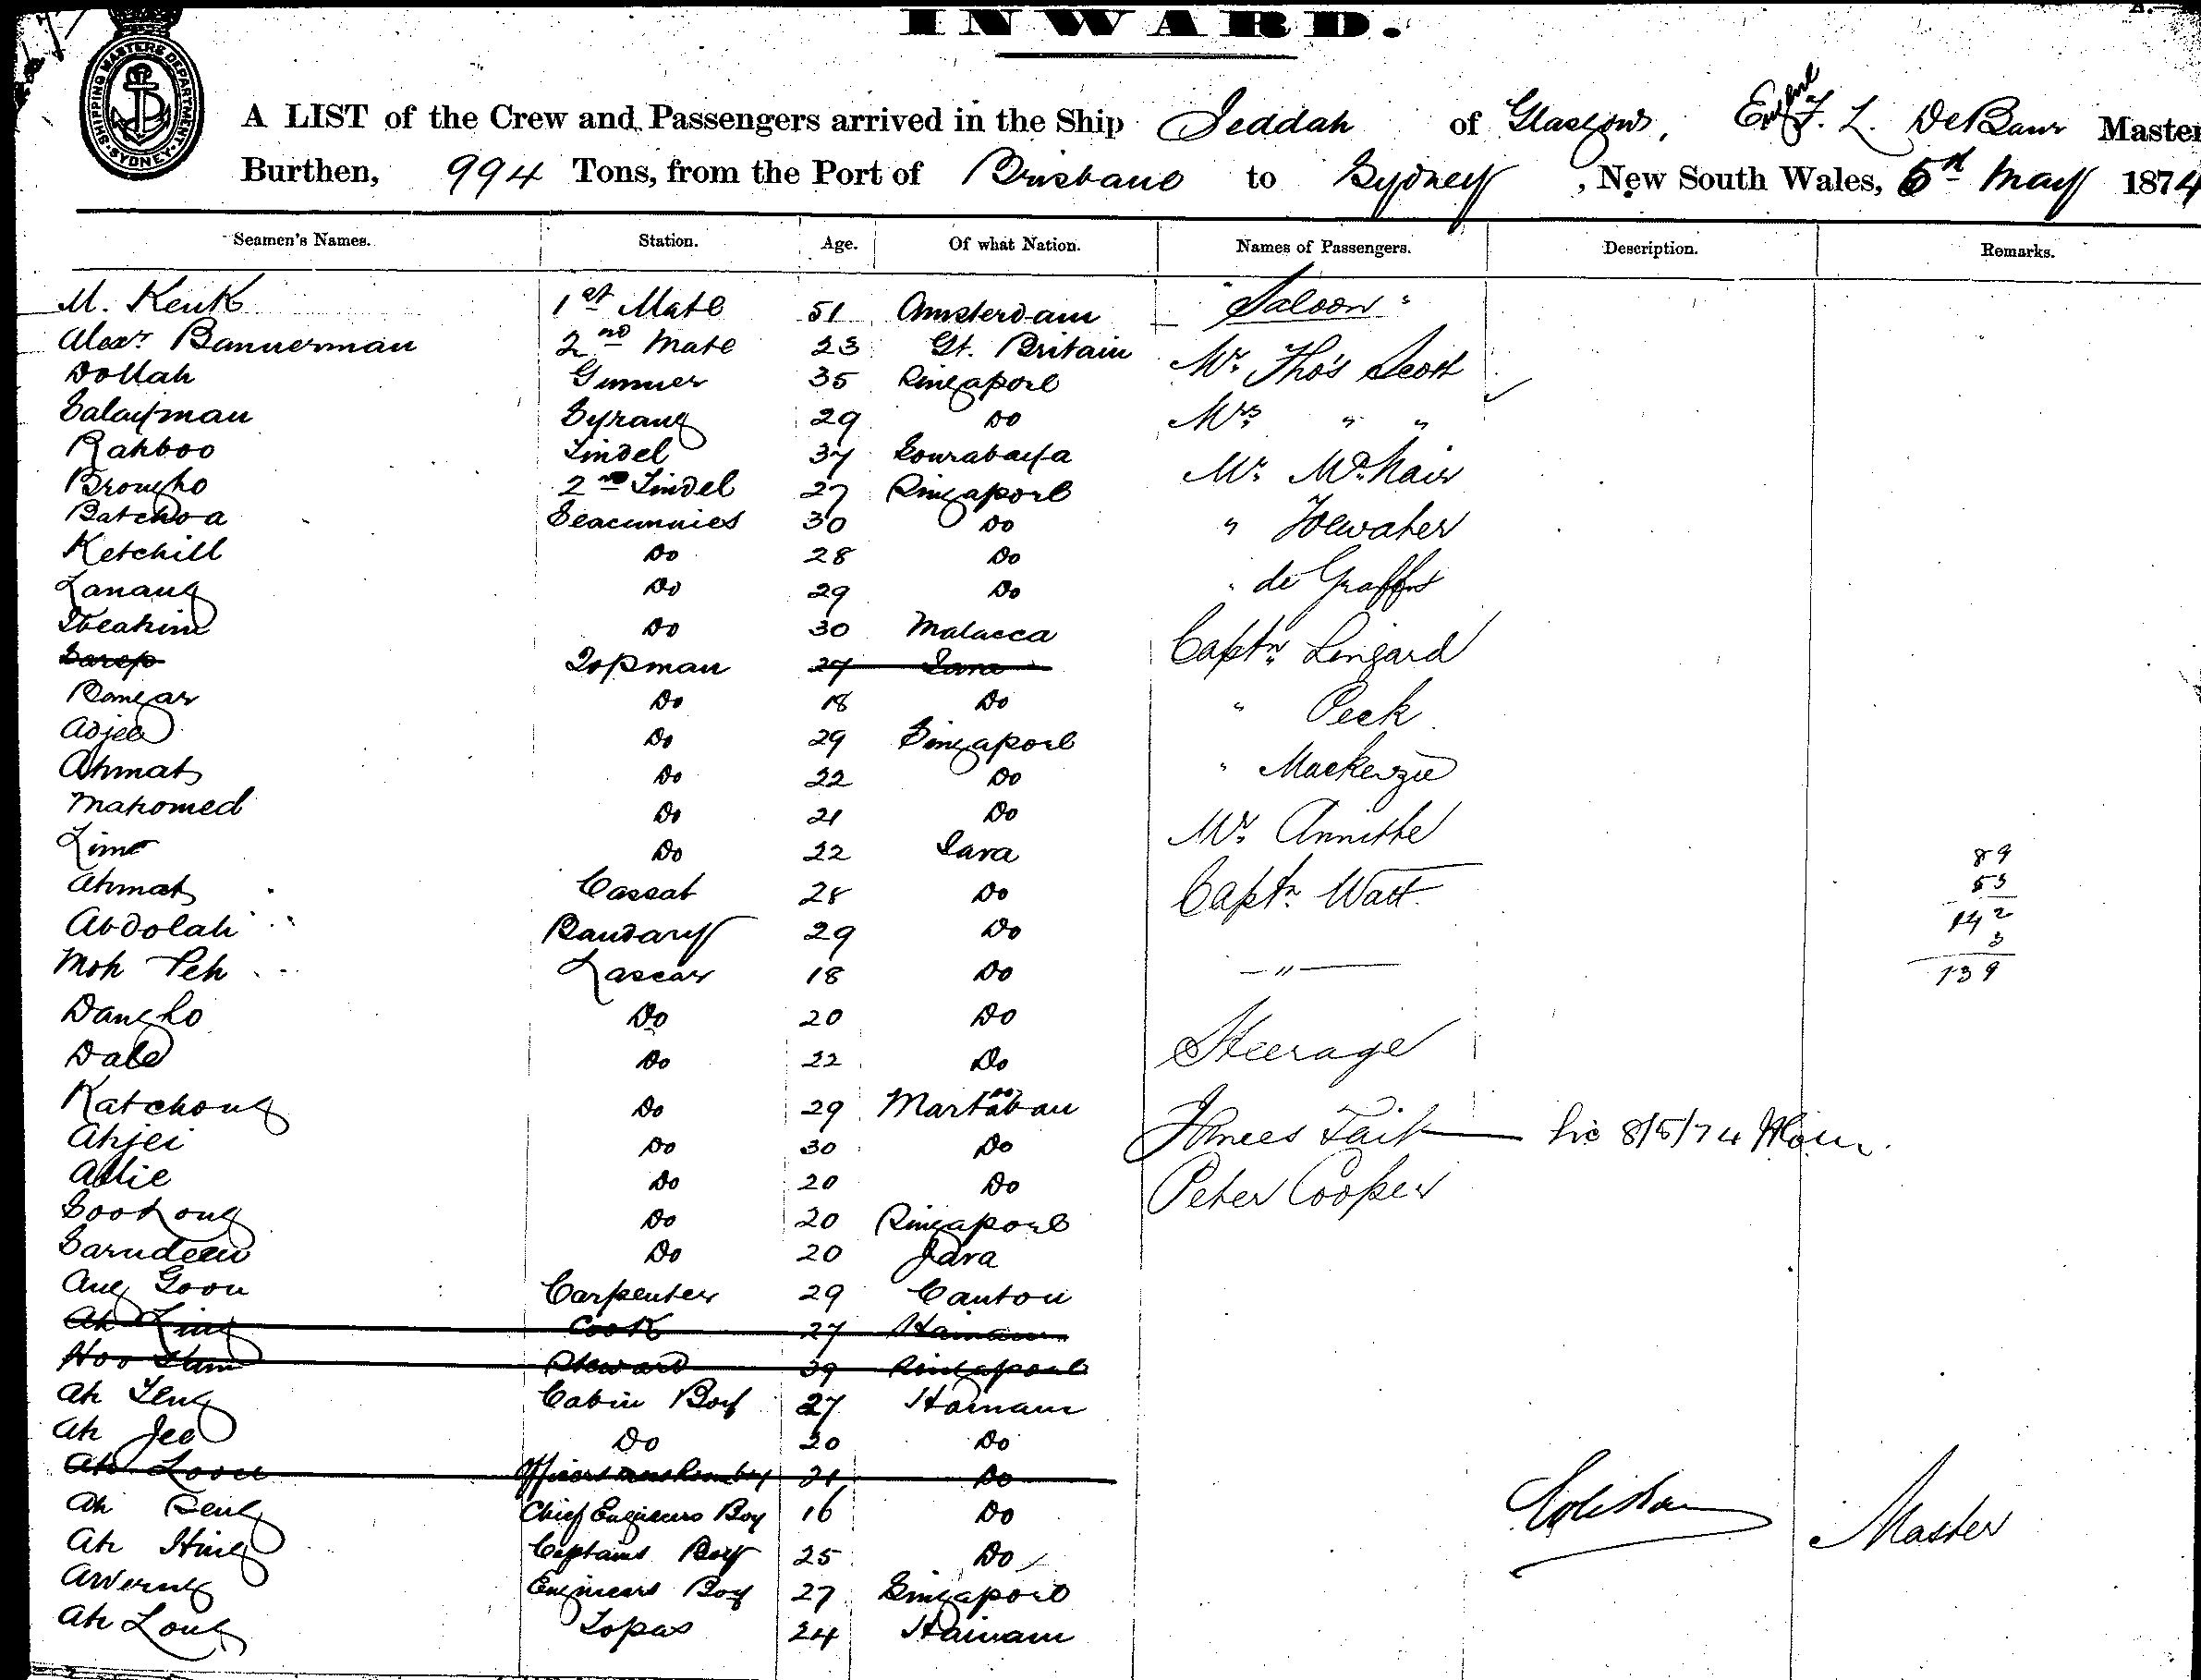 INWARD.
SHIPPING MASTERS DEPARTMENT SYDNEY
A LIST of the Crew and Passengers arrived in the Ship Jeddah of Glasgow, F. L. Master
Burthen, 994 Tons, from the Port of Brisbane to Sydney, New South Wales, May 1874
Seamen's Names. Station. Age. Of what Nation. Names of Passengers. Description. Remarks.
M. Keuk 1st Mate 51 Amsterdam "Saloon"
Alexr. Bannerman 2nd Mate 23 Gt. Britain Mr. Tho's Scott
Dollah Gunner 35 Singapore
Salaijman Syrang 29 Do Mrs " "
Rahboo Tindel 37 Sourabaija
Brongho 2nd Tindel 27 Singapore Mr. McNair
Batchoa Seacunnies 30 Do " Toewater
Ketchill Do 28 Do
Lanang Do 29 Do " de
Ibrahim Do 30 Malacca Captn. Lingard
Sarep Topman 27 Java
Do 18 Do " Peck
Adjee Do 29 Singapore
Ahmat Do 22 Do " Mackenzie
Mahomed Do 21 Do Mr.
Do 22 Java 89
Ahmat Cassab 28 Do Captn. Watt 53
Abdolah Bandary 29 Do 142
Moh Peh Lascar 18 Do — " — 3
139
Dangho Do 20 Do
Dale Do 22 Do Steerage
Katchong Do 29 Martaban
Ahjei Do 30 Do James Tait 8/5/74
Allie Do 20 Do Peter Cooper
Do 20 Singapore
Sarudeen Do 20 Java
Ang Goon Carpenter 29 Canton
Ah Ling Cook 27 Hainam
Hoo Steward 39 Singapore
Ah Teng Cabin Boy 27 Hainam
Ah Jee Do 20 Do
Ah Loon Officers 21 Do
Ah Seng Chief Engineers Boy 16 Do
Ah Hing Captains Boy 25 Do Master
Engineers Boy 27 Singapore
Ah Long Topas 24 Hainam